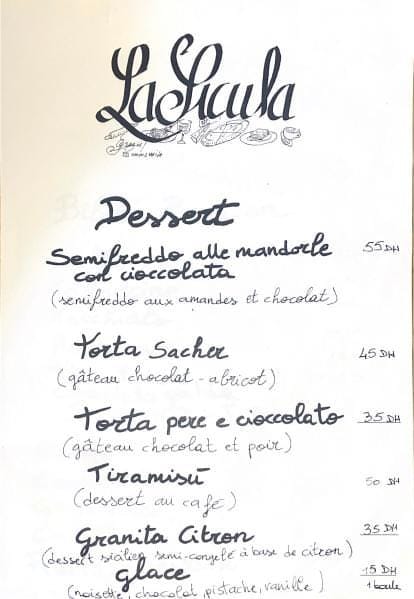 La Sicula
Dessert
Semifreddo alle mandorle 55 DH
con cioccolata
(semifreddo aux amandes et chocolat)
Torta Sacher 45 DH
(gâteau chocolat - abricot)
Torta pere e cioccolato 35 DH
(gâteau chocolat et poir)
Tiramisù 50 DH
(dessert au café)
Granita Citron 35 DH
(dessert sicilien semi-congelé à base de citron)
Glace 15 DH
(noisette, chocolat, pistache, vanille) 1 boule